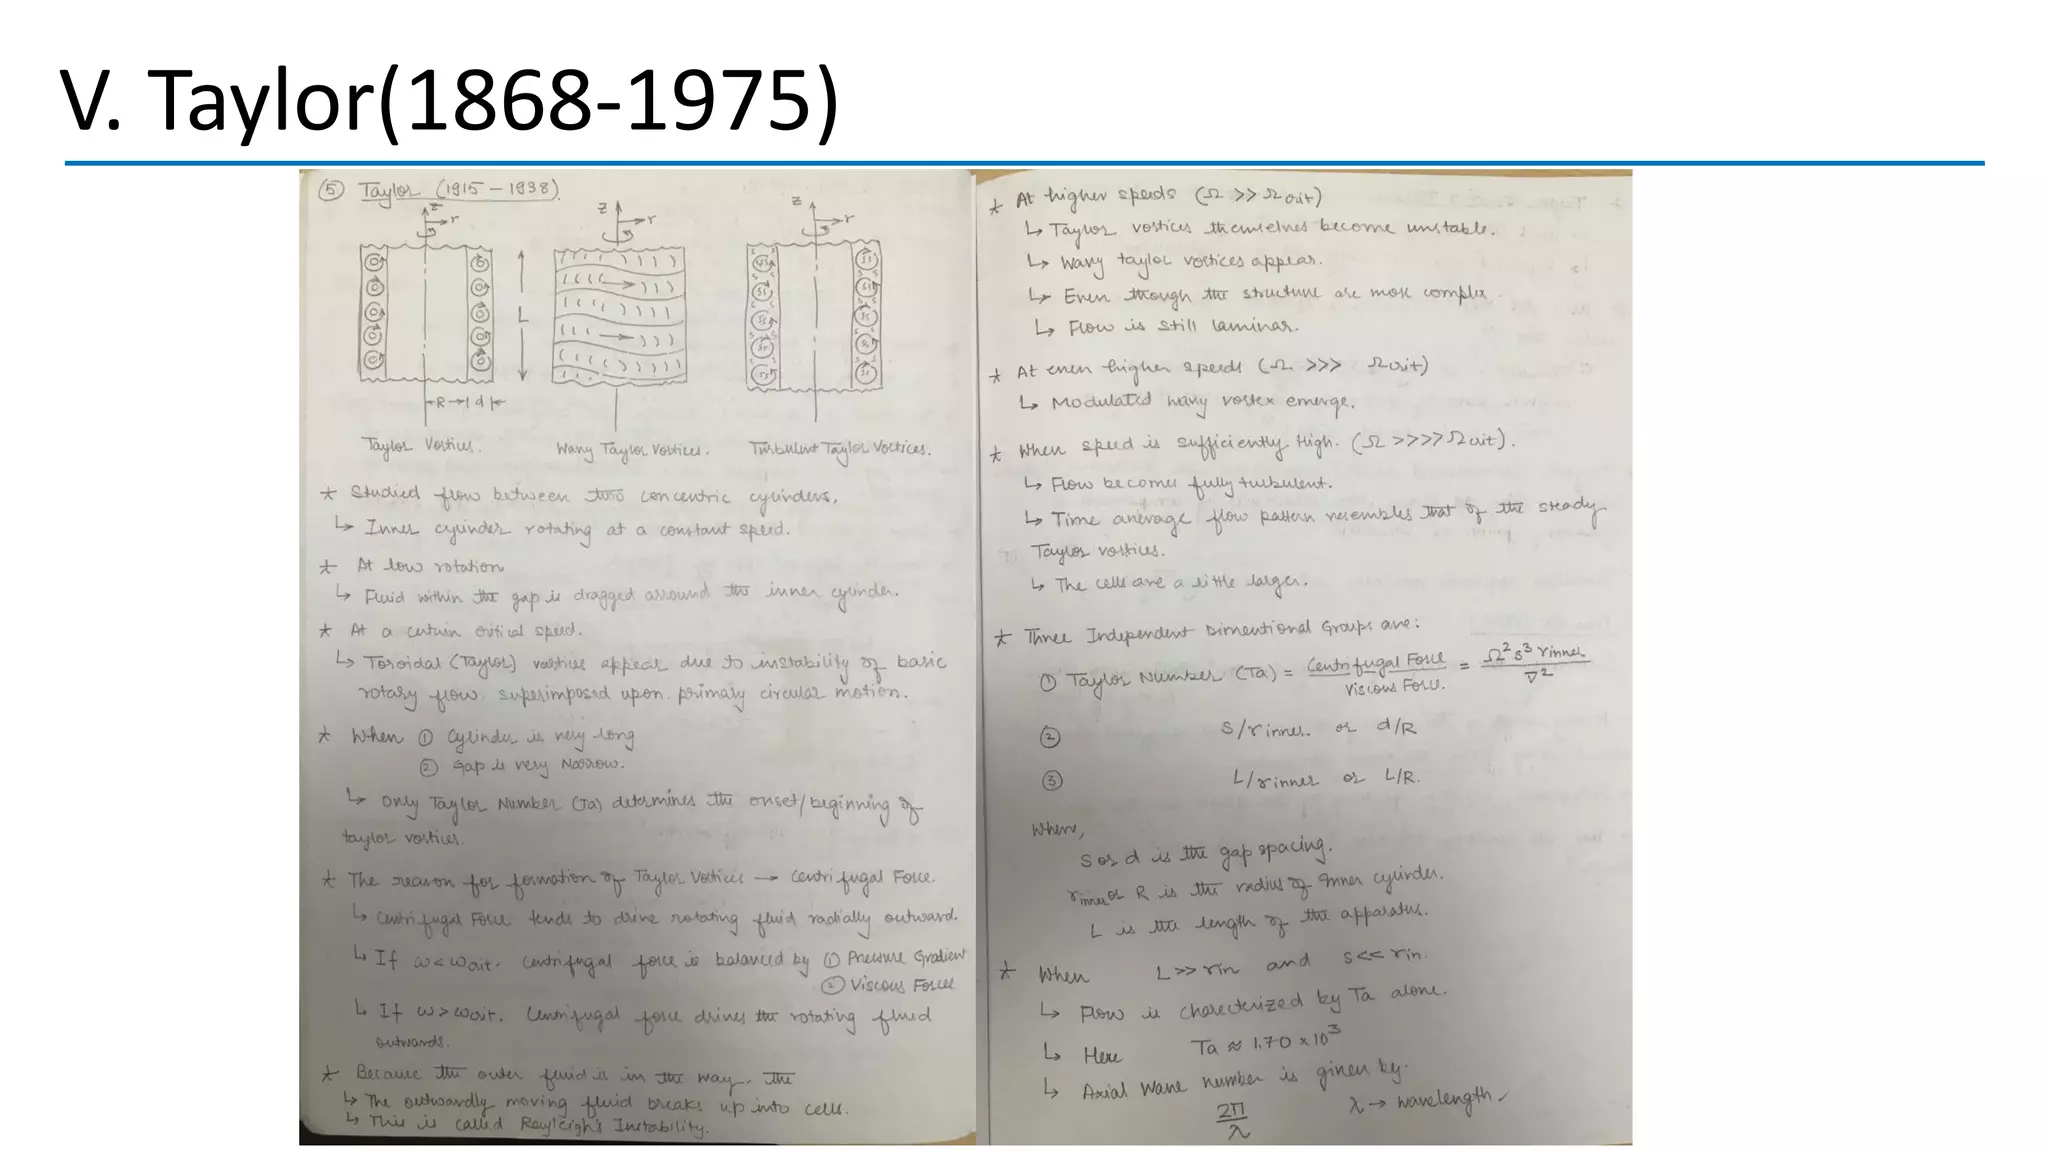 V. Taylor(1868-1975)
⑤ Taylor (1915 – 1938).
z
r
z
r
z
r
L
R
d
Taylor Vortices.
Wavy Taylor Vortices.
Turbulent Taylor Vortices.
* Studied flow between two concentric cylinders,
↳ Inner cylinder rotating at a constant speed.
* At low rotation
↳ Fluid within the gap is dragged arround the inner cylinder.
* At a certain critical speed.
↳ Toroidal (Taylor) vortices appear due to instability of basic
rotary flow. superimposed upon primary circular motion.
* When ① Cylinder is very long
② Gap is very Narrow.
↳ Only Taylor Number (Ta) determines the onset/beginning of
taylor vortices.
* The reason for formation of Taylor Vortices → Centrifugal Force.
↳ Centrifugal Force tends to drive rotating fluid radially outward.
↳ If ω < ωcrit. Centrifugal force is balanced by ① Pressure Gradient
② Viscous Force
↳ If ω > ωcrit. Centrifugal force drives the rotating fluid
outwards.
* Because the outer fluid is in the way. the
↳ The outwardly moving fluid breaks up into cells.
↳ This is called Rayleigh's Instability.
* At higher speeds (Ω >> Ωcrit)
↳ Taylor vortices themselves become unstable.
↳ Wavy taylor vortices appear.
↳ Even though the structure are more complex.
↳ Flow is still laminar.
* At even higher speeds (Ω >>> Ωcrit)
↳ Modulated wavy vortex emerge.
* When speed is sufficiently High. (Ω >>>> Ωcrit).
↳ Flow becomes fully turbulent.
↳ Time average flow pattern resembles that of the steady
Taylor vortices.
↳ The cells are a little larger.
* Three Independent Dimentional Groups are:
① Taylor Number (Ta) = Centrifugal Force / Viscous Force. = Ω² s³ rinner / ν²
② s/rinner. or d/R
③ L/rinner or L/R.
Where,
s or d is the gap spacing.
rinner or R is the radius of Inner cylinder.
L is the length of the apparatus.
* When L >> rin and s << rin.
↳ Flow is charecterized by Ta alone.
↳ Here Ta ≈ 1.70 × 10³
↳ Axial Wave number is given by.
2π/λ λ → wavelength